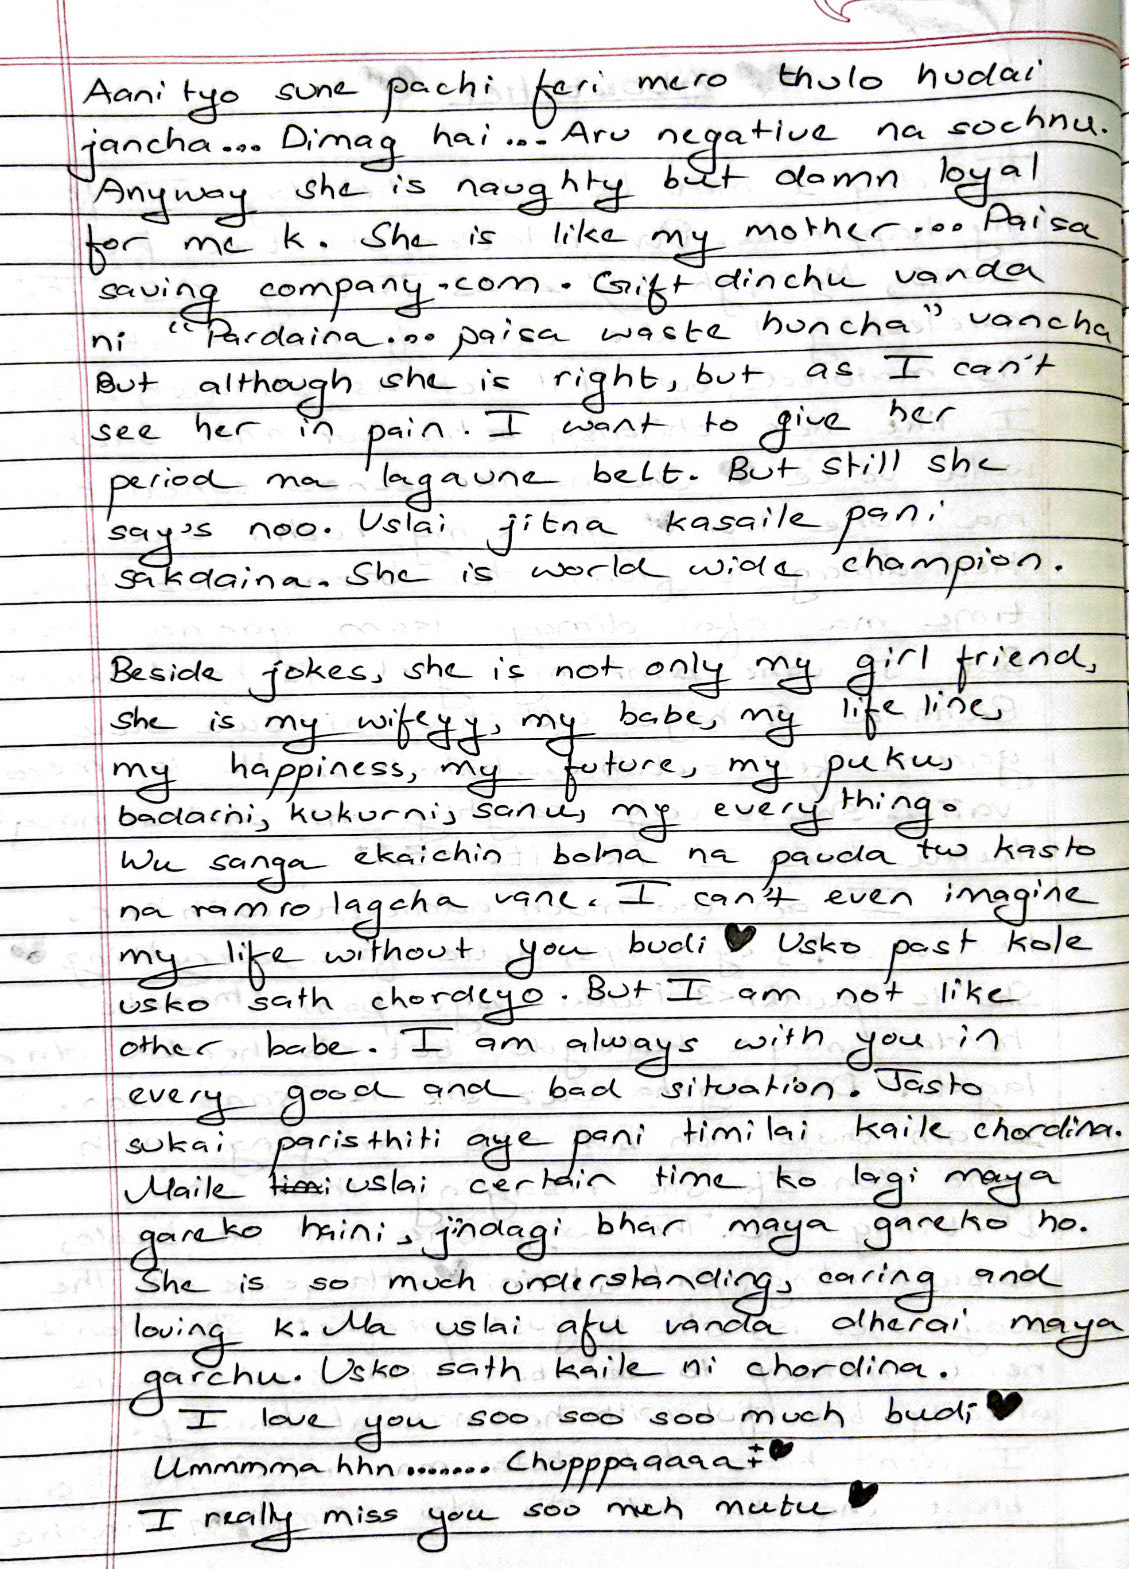 Aani tyo sune pachi feri mero thulo hudai
jancha... Dimag hai... Aru negative na sochnu.
Anyway she is naughty but damn loyal
for me k. She is like my mother... Paisa
saving company.com. Gift dinchu vanda
ni "Pardaina... paisa waste huncha" vancha
But although she is right, but as I can't
see her in pain. I want to give her
period ma lagaune belt. But still she
say's noo. Uslai jitna kasaile pani
sakdaina. She is world wide champion.
Beside jokes, she is not only my girl friend,
she is my wifeyy, my babe, my life line,
my happiness, my future, my puku,
badarni, kukurni, sanu, my every thing.
Wu sanga ekaichin bolna na pauda tw kasto
na ramro lagcha vane. I can't even imagine
my life without you budi ♥ Usko past kole
usko sath chordeyo. But I am not like
other babe. I am always with you in
every good and bad situation. Jasto
sukai paristhiti aye pani timilai kaile chordina.
Maile uslai certain time ko lagi maya
gareko haini, jindagi bhar maya gareko ho.
She is so much understanding, caring and
loving k. Ma uslai afu vanda dherai maya
garchu. Usko sath kaile ni chordina.
I love you soo soo soo much budi ♥
Ummmma hhn....... Chupppaaaaa ♥
I really miss you soo much mutu ♥